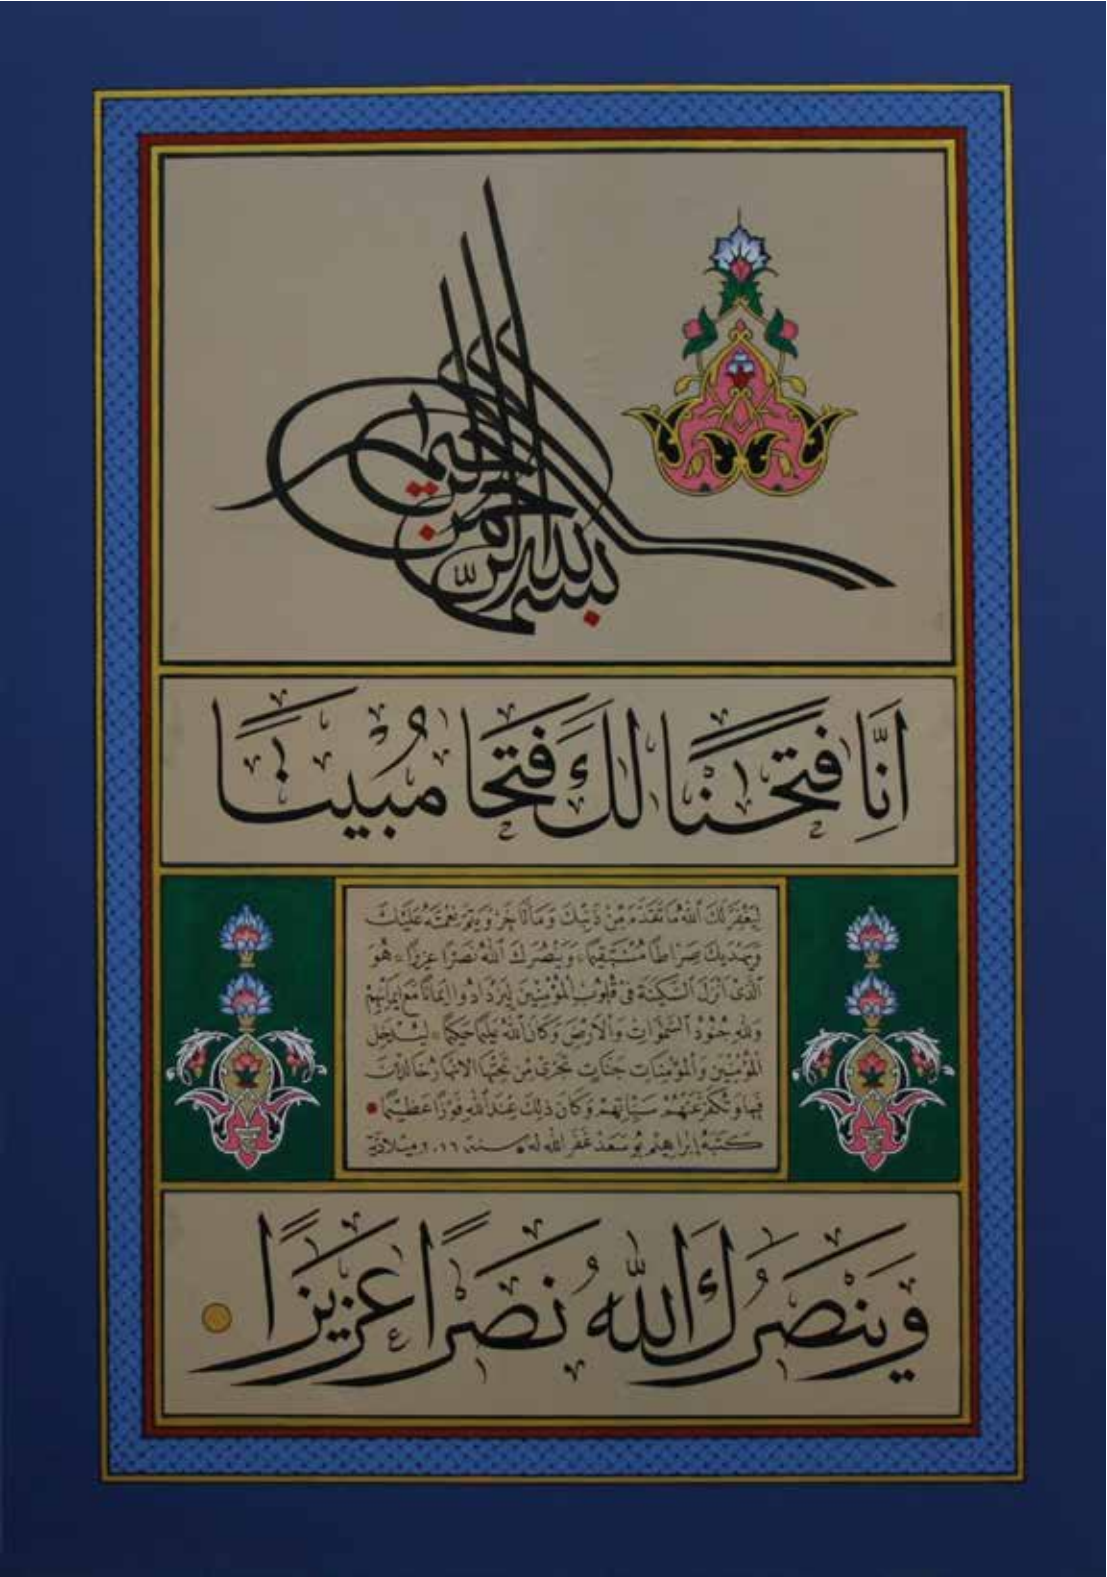 بسم الله الرحمن الرحيم
اِنَّا فَتَحْنَا لَكَ فَتْحًا مُبِينًا
لِيَغْفِرَ لَكَ اللهُ مَا تَقَدَّمَ مِنْ ذَنْبِكَ وَمَا تَأَخَّرَ وَيُتِمَّ نِعْمَتَهُ عَلَيْكَ
وَيَهْدِيَكَ صِرَاطًا مُسْتَقِيمًا وَيَنْصُرَكَ اللهُ نَصْرًا عَزِيزًا هُوَ
الَّذِى اَنْزَلَ السَّكِينَةَ فِى قُلُوبِ الْمُؤْمِنِينَ لِيَزْدَادُوا اِيمَانًا مَعَ اِيمَانِهِمْ
وَلِلّٰهِ جُنُودُ السَّمٰوَاتِ وَالْاَرْضِ وَكَانَ اللهُ عَلِيمًا حَكِيمًا لِيُدْخِلَ
الْمُؤْمِنِينَ وَالْمُؤْمِنَاتِ جَنَّاتٍ تَجْرِى مِنْ تَحْتِهَا الْاَنْهَارُ خَالِدِينَ
فِيهَا وَيُكَفِّرَ عَنْهُمْ سَيِّئَاتِهِمْ وَكَانَ ذٰلِكَ عِنْدَ اللهِ فَوْزًا عَظِيمًا
كتبه إبراهيم بو سعد غفر الله له سنة ٢٠١٦ ميلادية
وَيَنْصُرَكَ اللهُ نَصْرًا عَزِيزًا